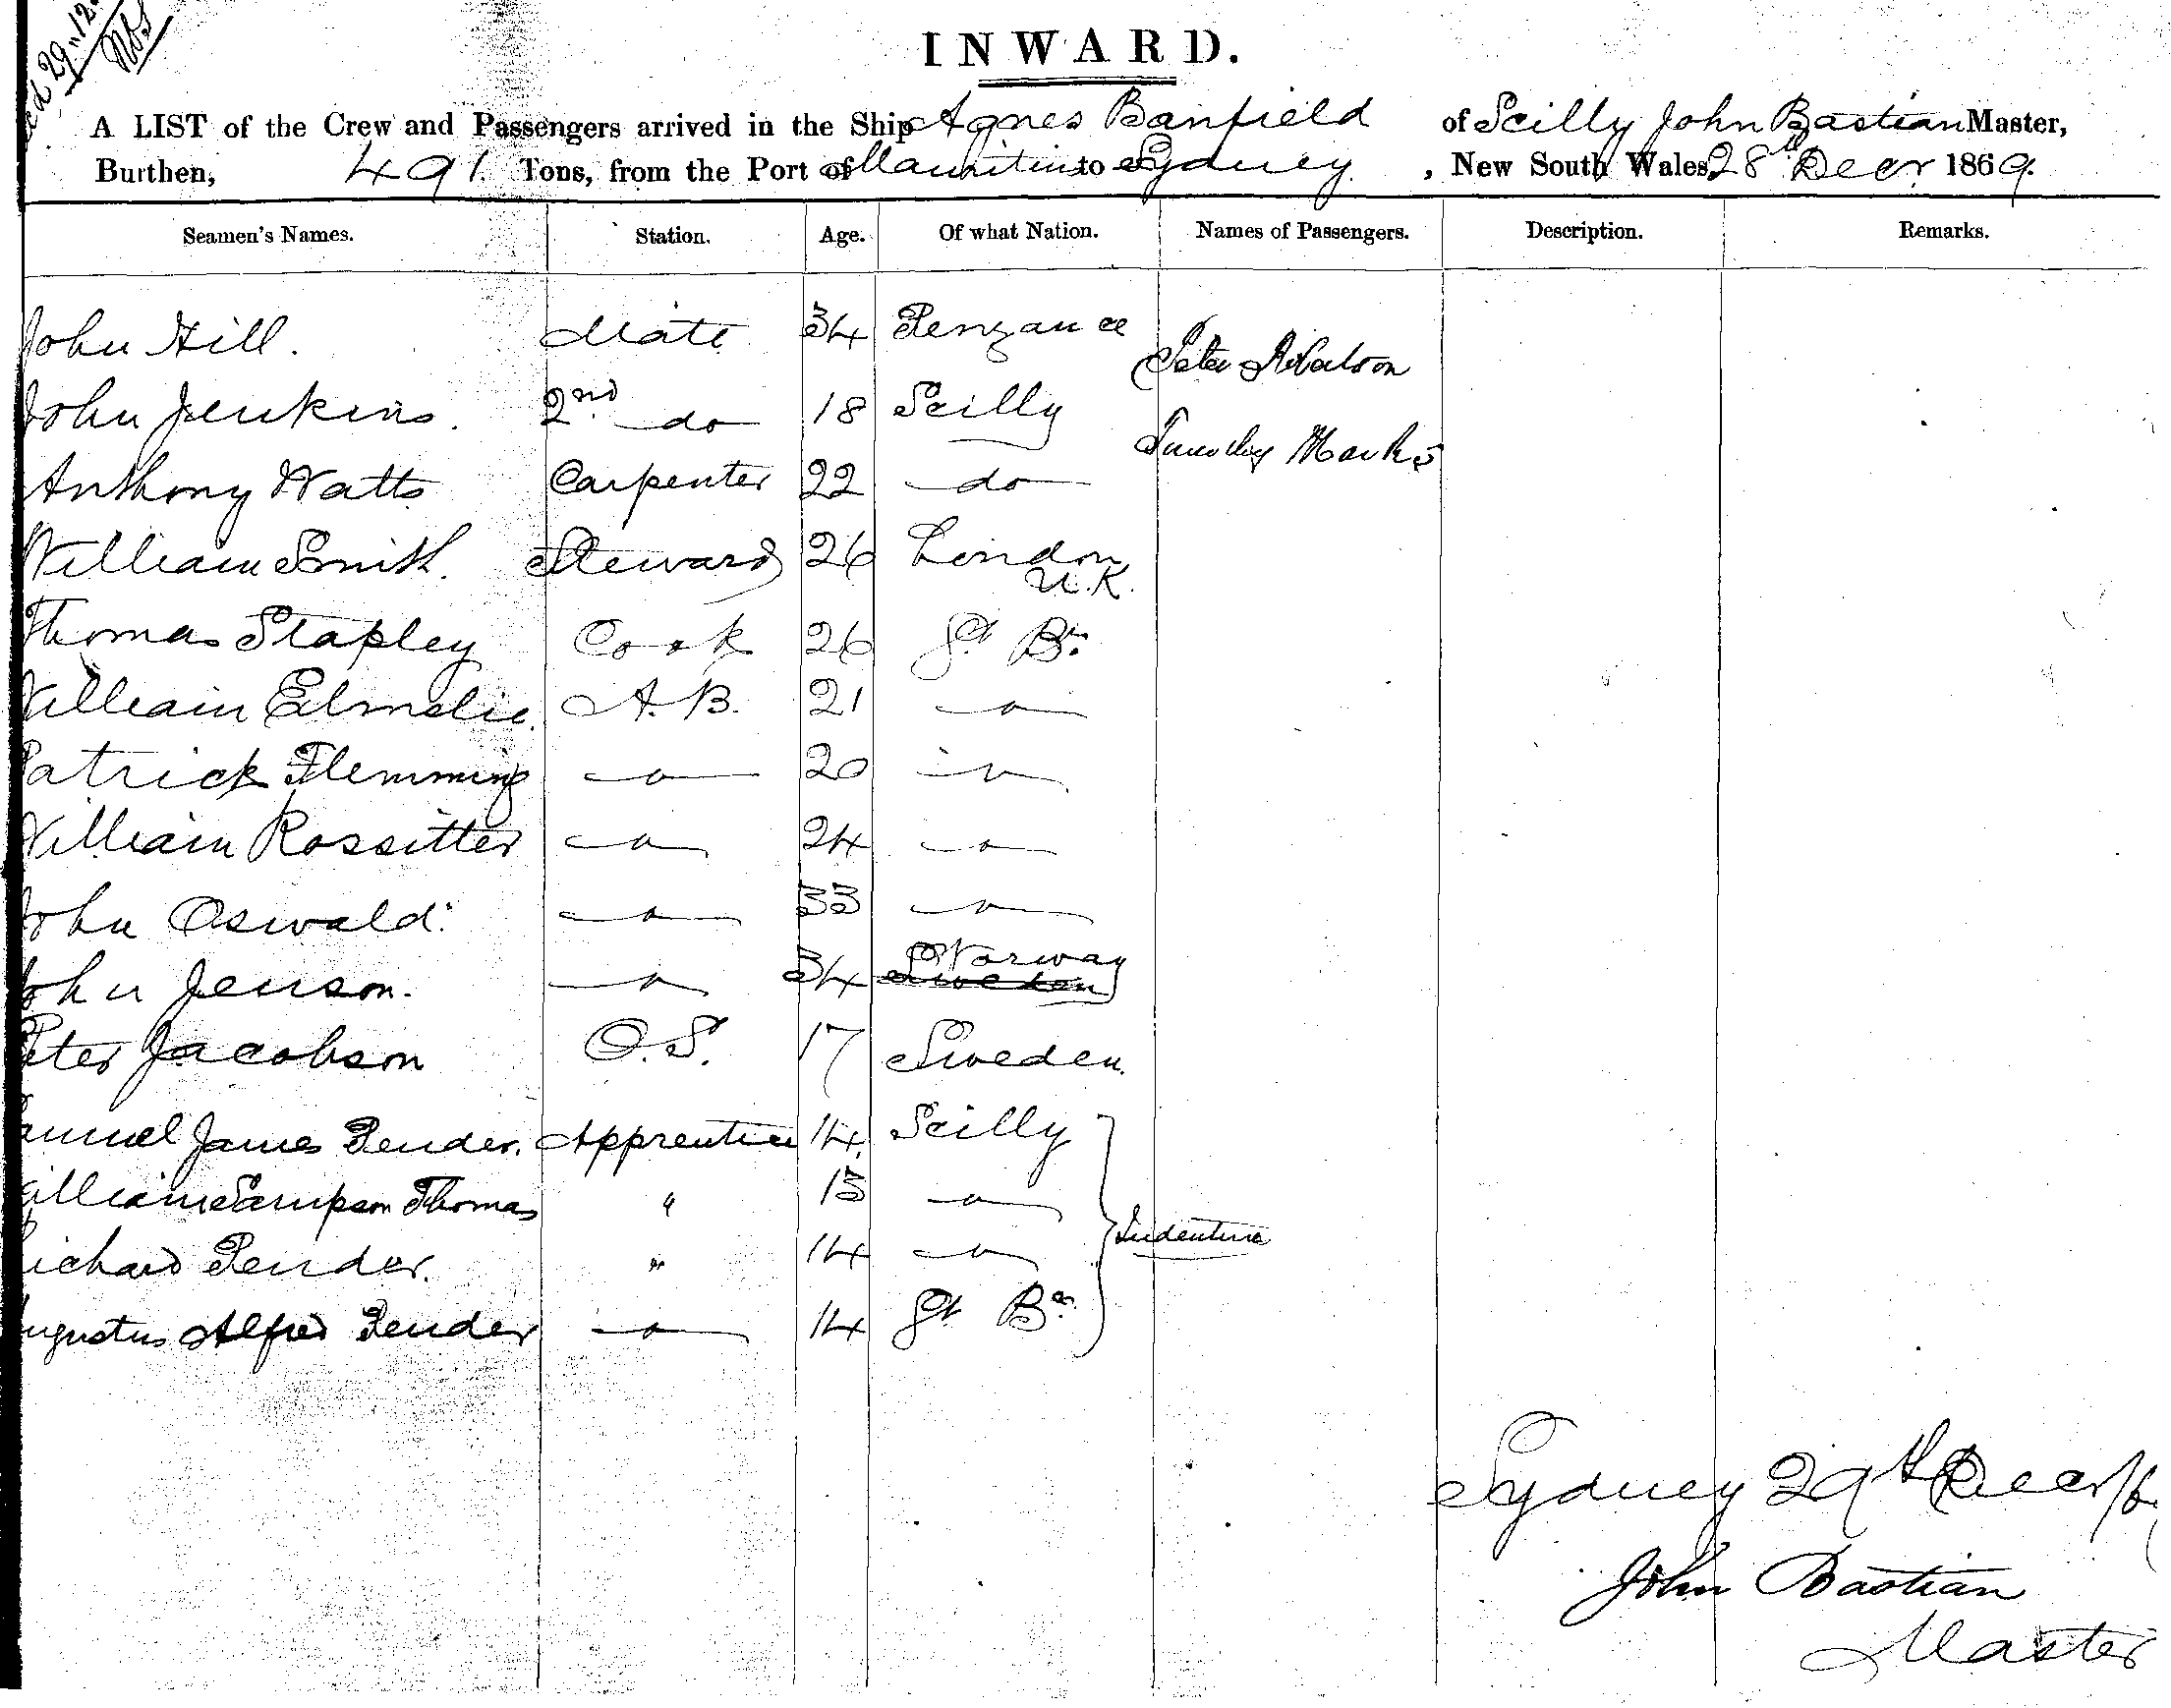 29 " 12
INWARD.
A LIST of the Crew and Passengers arrived in the Ship Agnes Banfield of Scilly John Bastian Master,
Burthen, 491 Tons, from the Port of Mauritius to Sydney, New South Wales, 28th Decr. 1869.
Seamen's Names. Station. Age. Of what Nation. Names of Passengers. Description. Remarks.
John Hill. Mate 34 Penzance
Peter
John Jenkins. 2nd do 18 Scilly
Timothy Marks
Anthony Watts Carpenter 22 do
William Smith. Steward 26 London
U.K.
Thomas Stapley Cook 26 Gt Bn.
William A.B. 21 "
Patrick Flemming " 20 "
William Rossitter " 24 "
John Oswald. " 33 "
John Jenson. " 34 Norway Sweden
Peter Jacobson O.S. 17 Sweden.
Samuel James Pender. Apprentice 14. Scilly
William Sampson Thomas " 15 "
Indenture
Richard Pender. " 14 "
Augustus Alfred Pender " 14 Gt Bn.
Sydney 29th Decr/6
John Bastian
Master